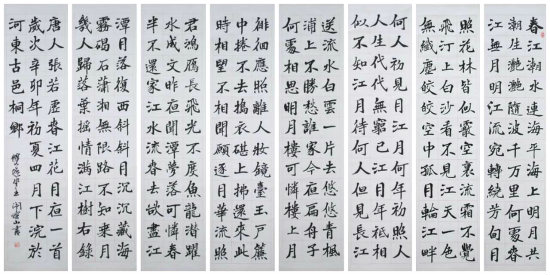 春江潮水連海平海上明月共
潮生灔灔隨波千萬里何處春
江無月明江流宛轉繞芳甸月
照花林皆似霰空里流霜不覺
飛汀上白沙看不見江天一色
無纖塵皎皎空中孤月輪江畔
何人初見月江月何年初照人
人生代代無窮已江月年祇相
似不知江月待何人但見長江
送流水白雲一片去悠悠青楓
浦上不勝愁誰家今夜扁舟子
何處相思明月樓可憐樓上月
徘徊應照離人妝鏡臺玉戶簾
中捲不去搗衣砧上拂還來此
時相望不相聞願逐月華流照
君鴻雁長飛光不度魚龍潛躍
水成文昨夜閒潭夢落可憐春
半不還家江水流春去欲盡江
潭月落復西斜斜月沉沉藏海
霧碣石瀟湘無限路不知乘月
幾人歸落月搖情滿江樹右錄
唐人張若虛春江花月夜一首
歲次辛卯年初夏四月下浣於
河東古邑桐鄉